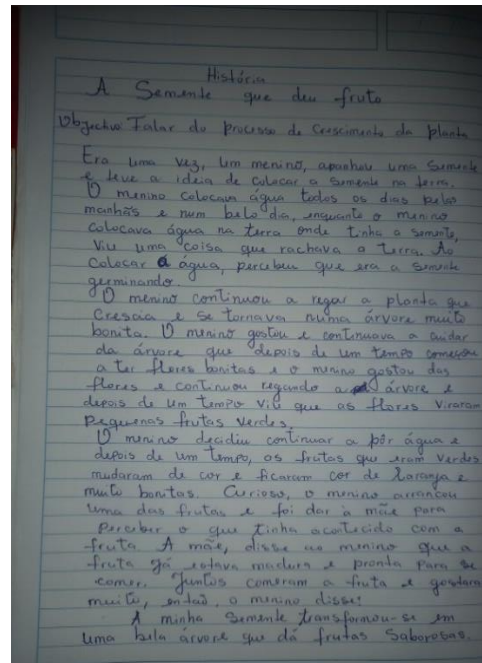 História
A Semente que deu fruto
Objectivo: Falar do processo de crescimento da planta
Era uma vez, um menino, apanhou uma semente
e teve a ideia de colocar a semente na terra.
O menino colocava água todos os dias pelas
manhãs e num belo dia, enquanto o menino
colocava água na terra onde tinha a semente,
viu uma coisa que rachava a terra. Ao
colocar a água, percebeu que era a semente
germinando.
O menino continuou a regar a planta que
crescia e se tornava numa árvore muito
bonita. O menino gostou e continuava a cuidar
da árvore que depois de um tempo começou
a ter flores bonitas e o menino gostou das
flores e continuou regando a árvore e
depois de um tempo viu que as flores viraram
pequenas frutas verdes.
O menino decidiu continuar a pôr água e
depois de um tempo, as frutas que eram verdes
mudaram de cor e ficaram cor de laranja e
muito bonitas. Curioso, o menino arrancou
uma das frutas e foi dar à mãe para
perceber o que tinha acontecido com a
fruta. A mãe, disse ao menino que a
fruta já estava madura e pronta para se
comer. Juntos comeram a fruta e gostaram
muito, então, o menino disse:
A minha semente transformou-se em
uma bela árvore que dá frutas saborosas.